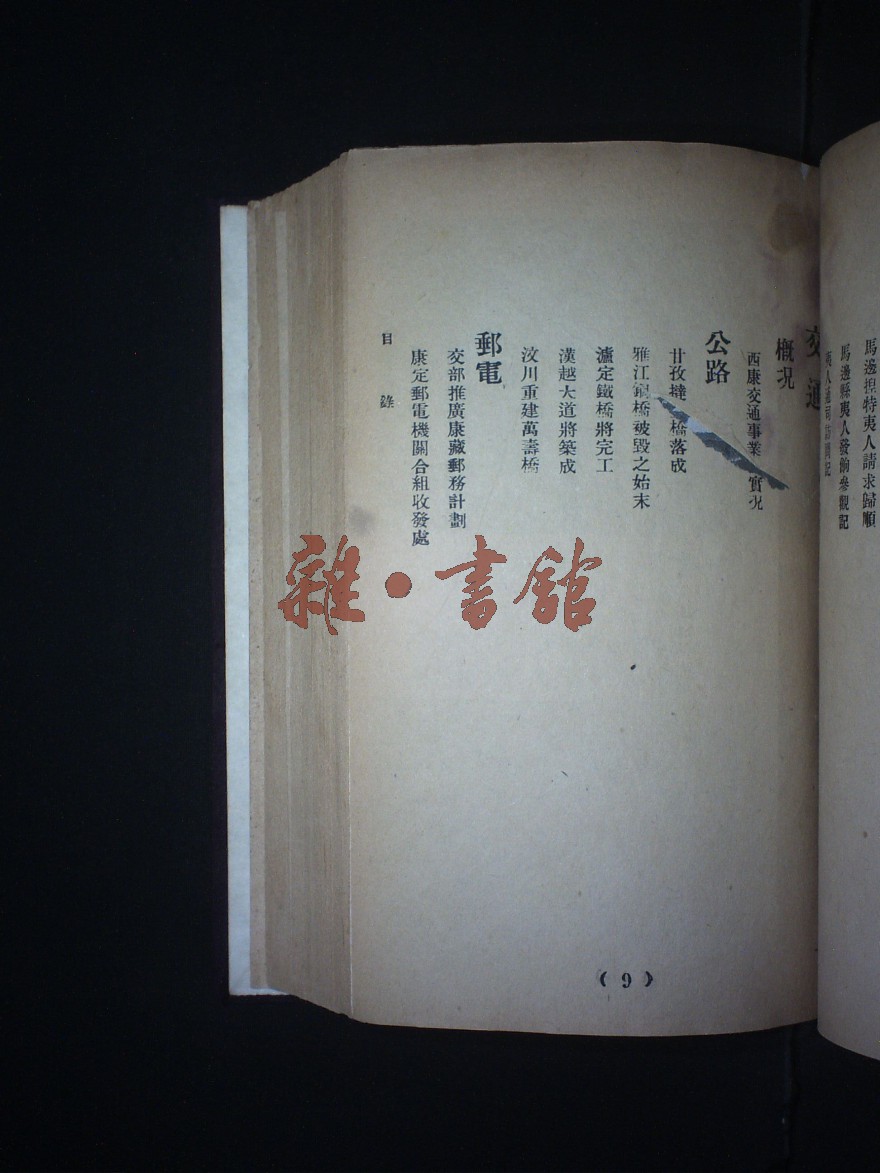 馬邊捏特夷人請求歸順
馬邊縣夷人發餉參觀記
夷人通司訪問記
交通
概況
西康交通事業 實況
公路
甘孜 橋落成
雅江鋼橋被毀之始末
瀘定鐵橋將完工
漢越大道將築成
汶川重建萬壽橋
郵電
交部推廣康藏郵務計劃
康定郵電機關合組收發處
目錄
(9)
雜·書館